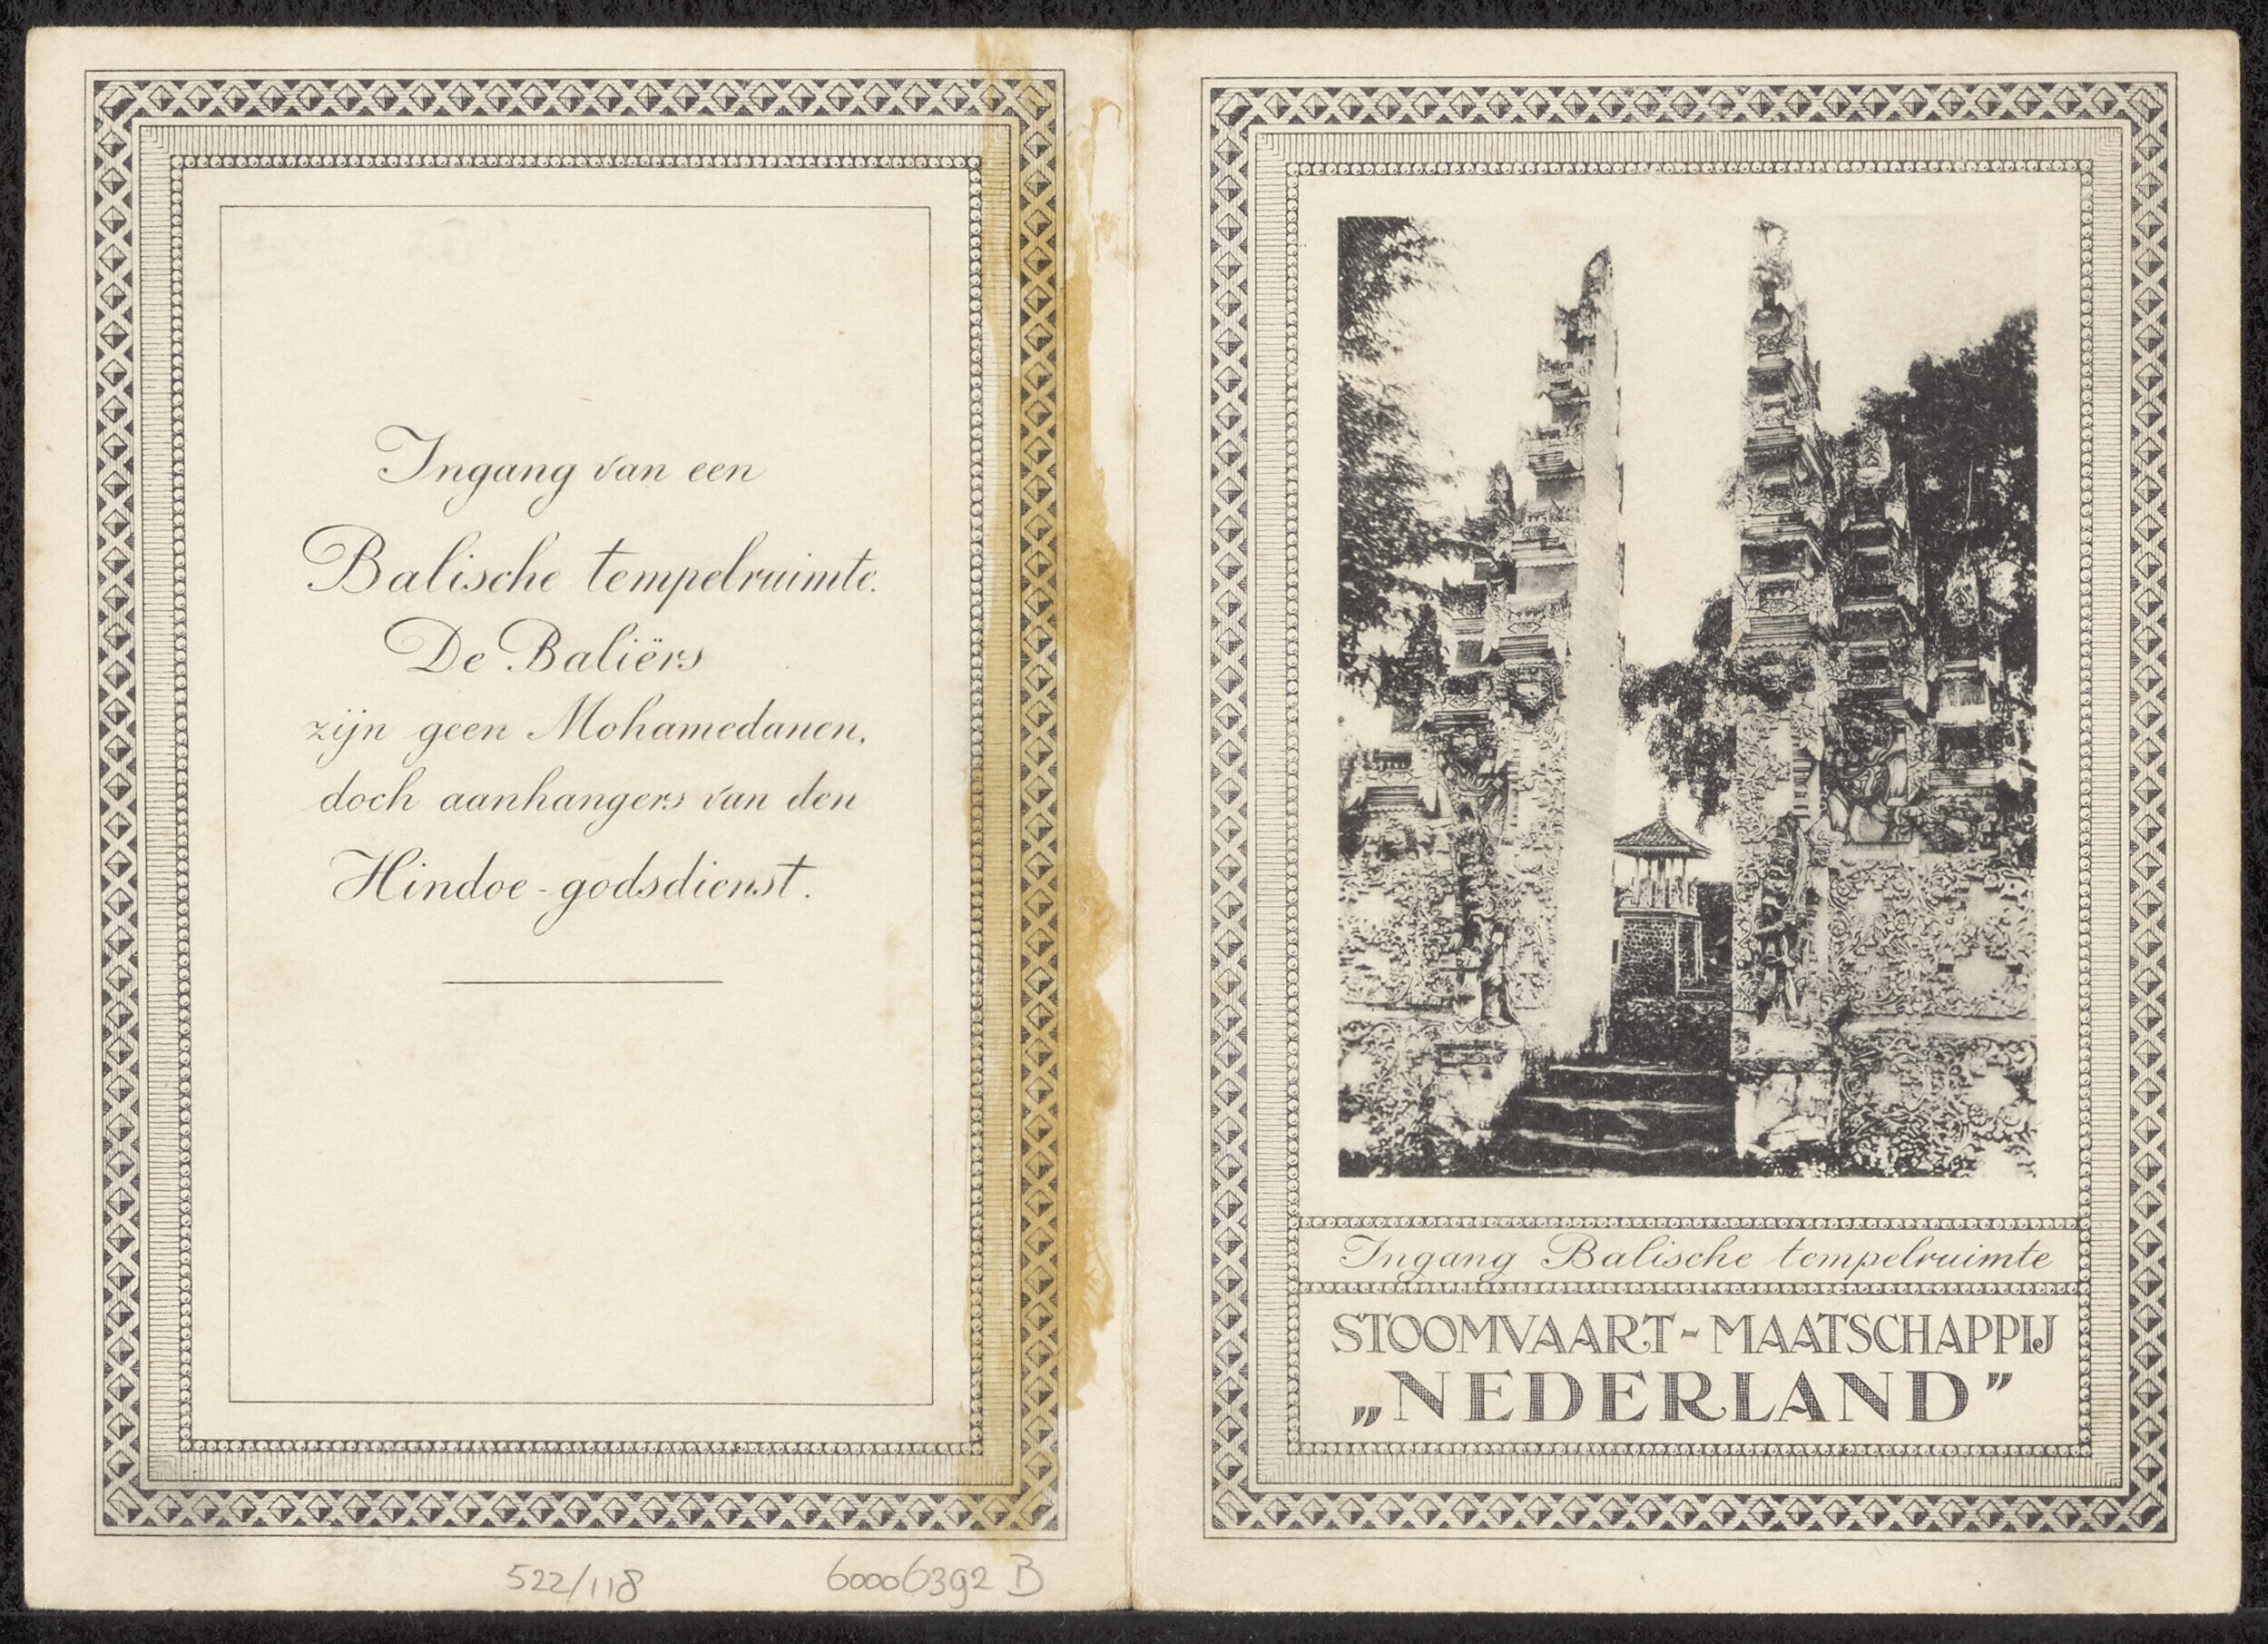 Ingang van een
Balische tempelruimte.
De Baliërs
zijn geen Mohamedanen,
doch aanhangers van den
Hindoe-godsdienst.
522/118
60006392 B
Ingang Balische tempelruimte
STOOMVAART-MAATSCHAPPIJ
„NEDERLAND”